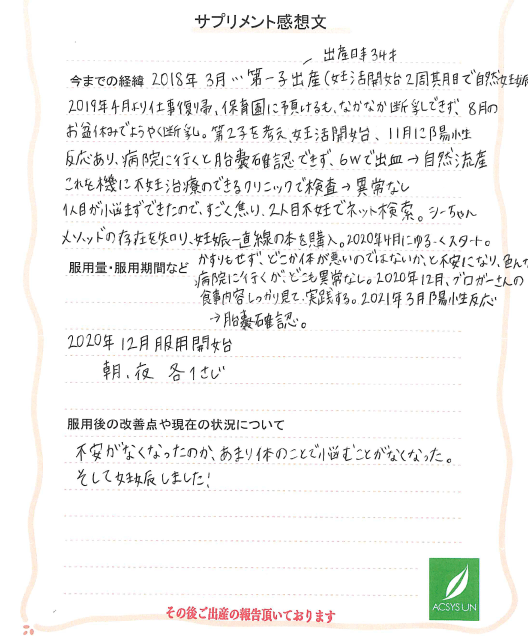 サプリメント感想文
出産時34才
今までの経緯 2018年3月…第一子出産(妊活開始2周期目で自然妊娠
2019年4月より仕事復帰、保育園に預けるも、なかなか断乳できず、8月の
お盆休みでようやく断乳。第2子を考え、妊活開始、11月に陽性
反応あり、病院に行くと胎嚢確認できず、6Wで出血→自然流産
これを機に不妊治療のできるクリニックで検査→異常なし
1人目が悩まずできたので、すごく焦り、2人目不妊でネット検索。シーちゃん
メソッドの存在を知り、妊娠一直線の本を購入。2020年4月にゆる〜くスタート。
服用量・服用期間など かすりもせず、どこか体が悪いのではないか、と不安になり、色んな
病院に行くが、どこも異常なし。2020年12月、ブロガーさんの
食事内容しっかり見て、実践する。2021年3月陽性反応
→胎嚢確認。
2020年12月服用開始
朝、夜 各1さじ
服用後の改善点や現在の状況について
不安がなくなったのか、あまり体のことで悩むことがなくなった。
そして妊娠しました!
ACSYS UN
その後ご出産の報告頂いております